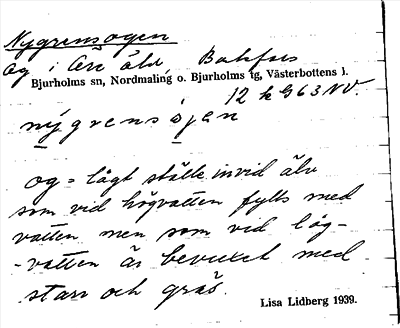 Nygrensogen
Og i Öre älv, Bakfors
Bjurholms sn, Nordmaling o. Bjurholms tg, Västerbottens l.
12 k G 63 NV.
nygrensøjen
og = lågt ställe invid älv
som vid högvatten fylls med
vatten men som vid låg-
-vatten är bevuxet med
starr och gräs.
Lisa Lidberg 1939.